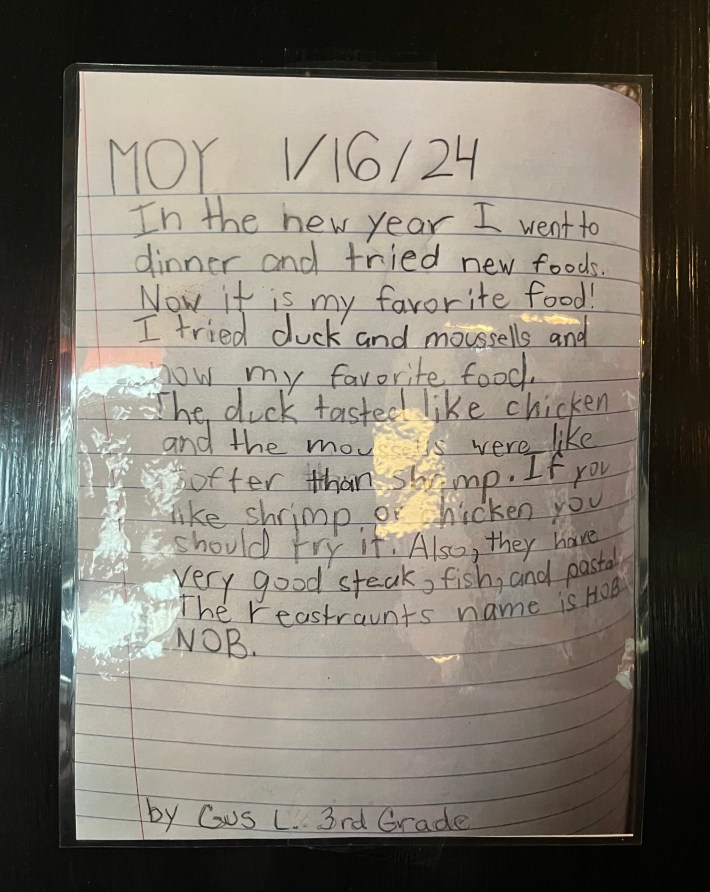 MOY 1/16/24
In the new year I went to
dinner and tried new foods.
Now it is my favorite food!
I tried duck and moussells and
now my favorite food.
The duck tasted like chicken
and the moussells were like
softer than shrimp. If you
like shrimp or chicken you
should try it. Also, they have
very good steak, fish, and pasta.
The reastraunts name is HOB
NOB.
by Gus L. 3rd Grade